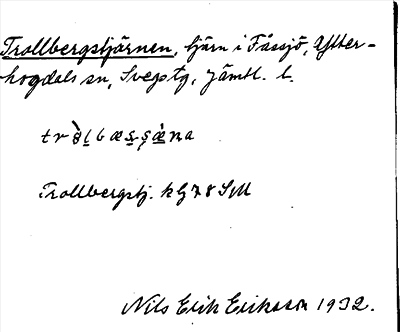 Trollbergstjärnen, tjärn i Fåssjö, Ytter-
hogdals sn, Svegs tg, Jämtl. l.
Trollbergstj. k lj 78 SM
Nils Erik Eriksson 1932.